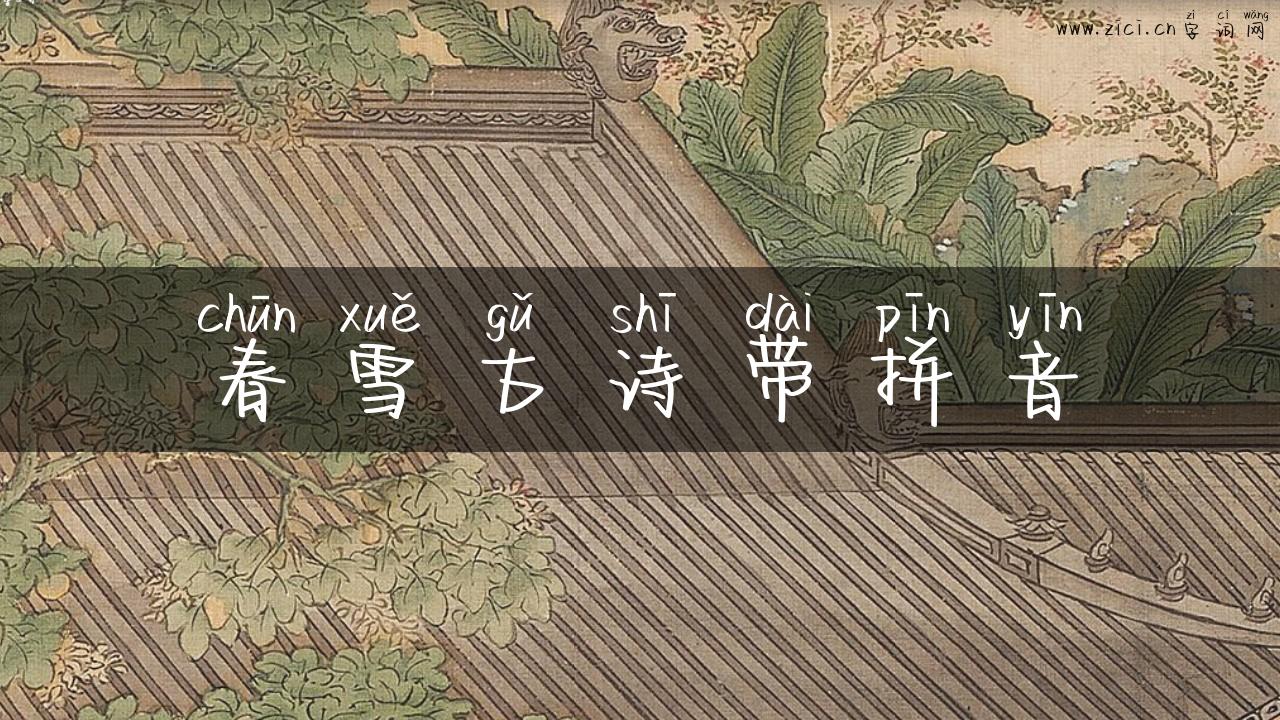 zì cí wǎng
www.zici.cn 字词网
chūn xuě gǔ shī dài pīn yīn
春雪古诗带拼音